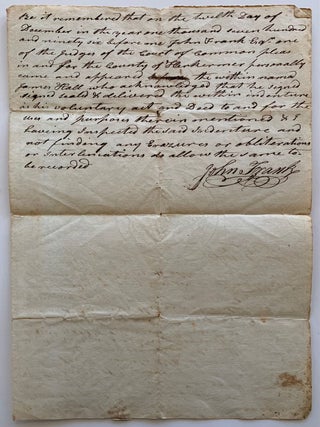 Be it remembered that on the twelfth Day of
December in the year one thousand seven hundred
and ninety six before me John Frank Esqr one
of the Judges of the Court of Common pleas
in and for the County of Herkermer personally
came and appeared the within name
James Hall who acknowledged that he signed
signed seald & delivered the within indenture
as his voluntary act and Deed to and for the
uses and purposes therein mentioned & I
having Inspected the said Indenture and
not finding any Erazures or obliterations
or Interlineations do allow the same to
be recorded
John Frank